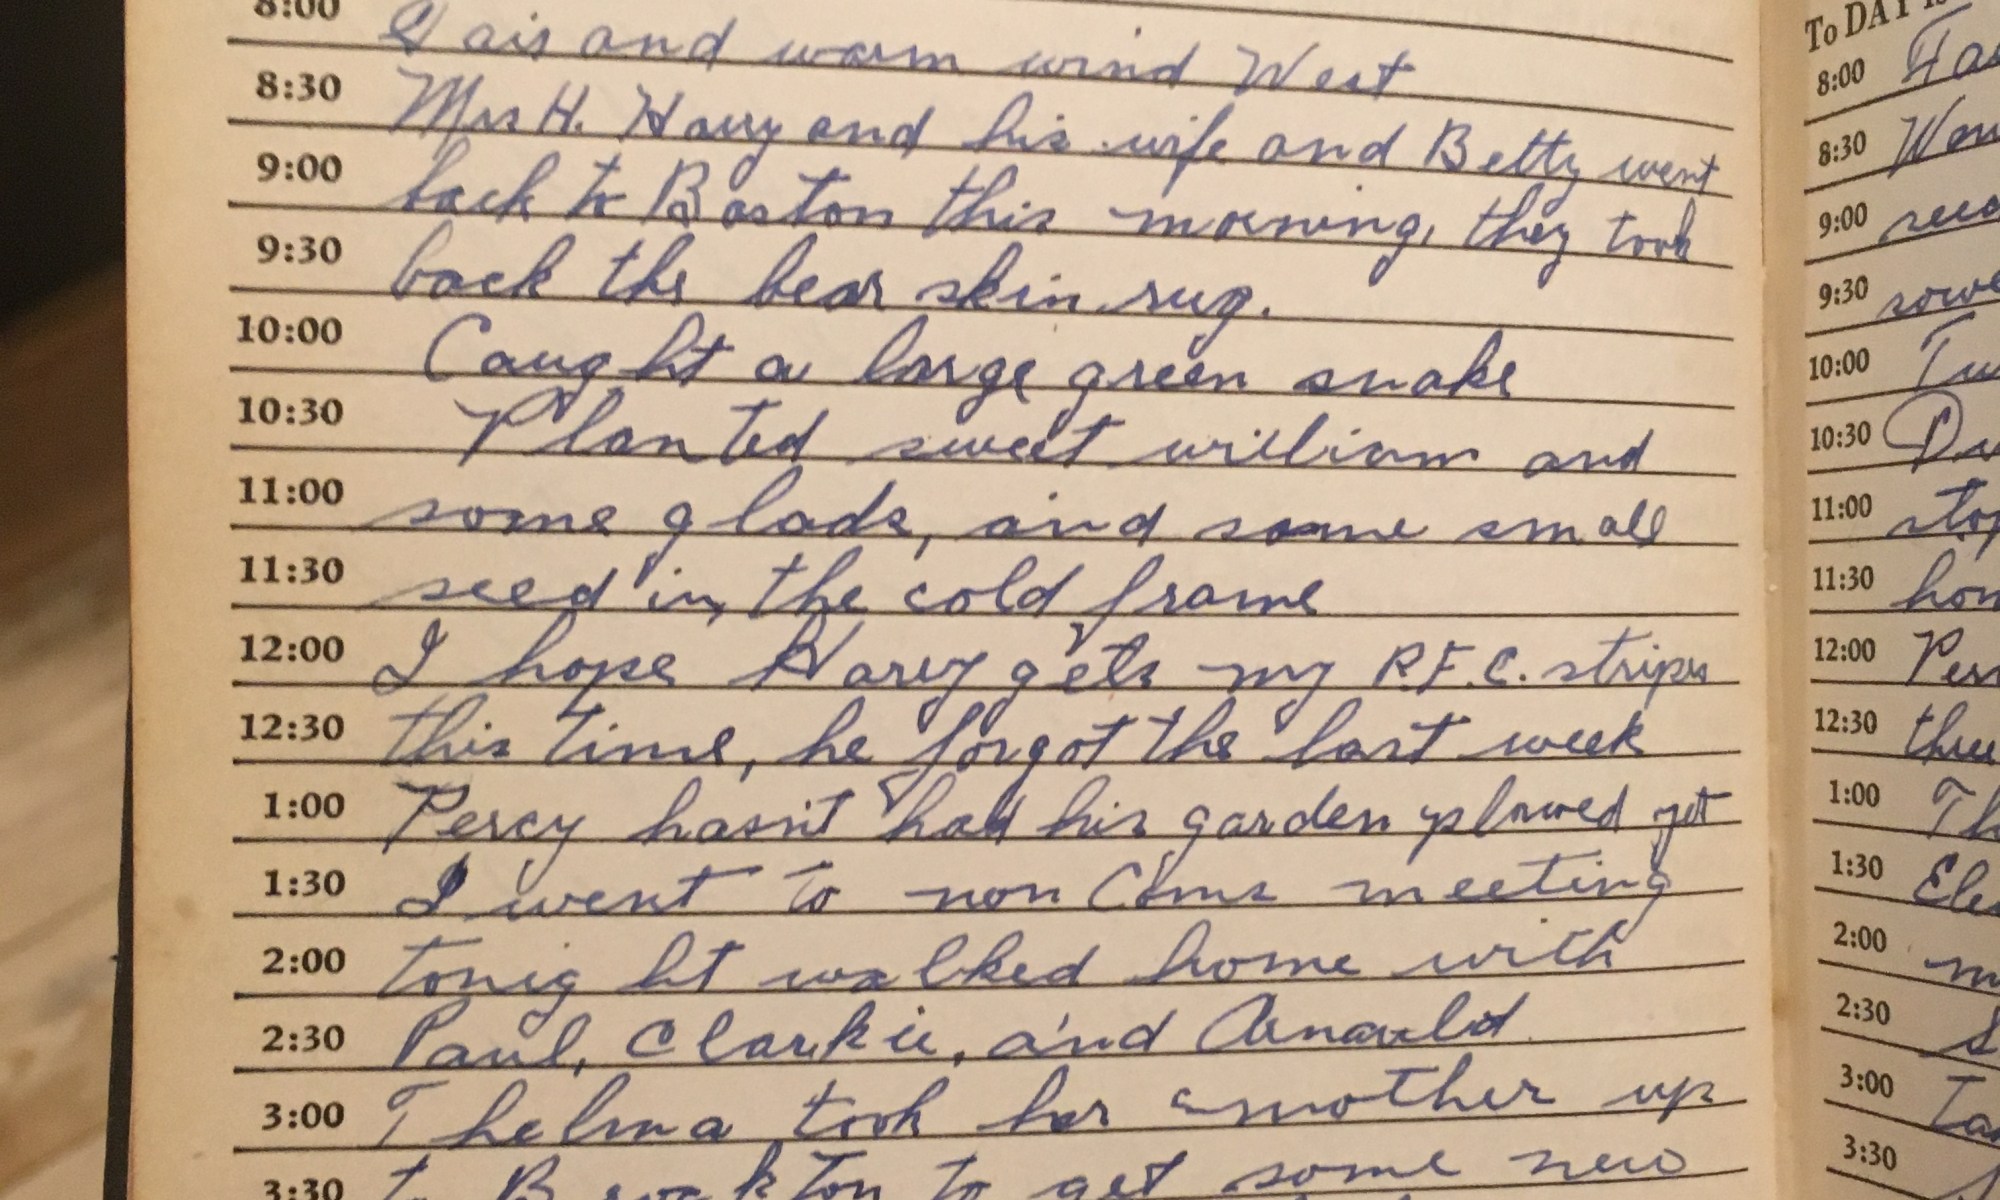 8:00 Fair and warm wind West
8:30 Mrs H. Harry and his wife and Betty went
9:00 back to Boston this morning, they took
9:30 back the bear skin rug.
10:00 Caught a large green snake
10:30 Planted sweet william and
11:00 some glads, and some small
11:30 seed in the cold frame
12:00 I hope Harry gets my P.F.C. stripes
12:30 this time, he forgot the last week
1:00 Percy hasn't had his garden plowed yet
1:30 I went to non Coms meeting
2:00 tonight walked home with
2:30 Paul, Clarkie, and Arnauld
3:00 Thelma took her mother up
3:30 to Brockton to get some new
To DAY
8:00
8:30
9:00
9:30
10:00
10:30
11:00
11:30
12:00
12:30
1:00
1:30
2:00
2:30
3:00
3:30